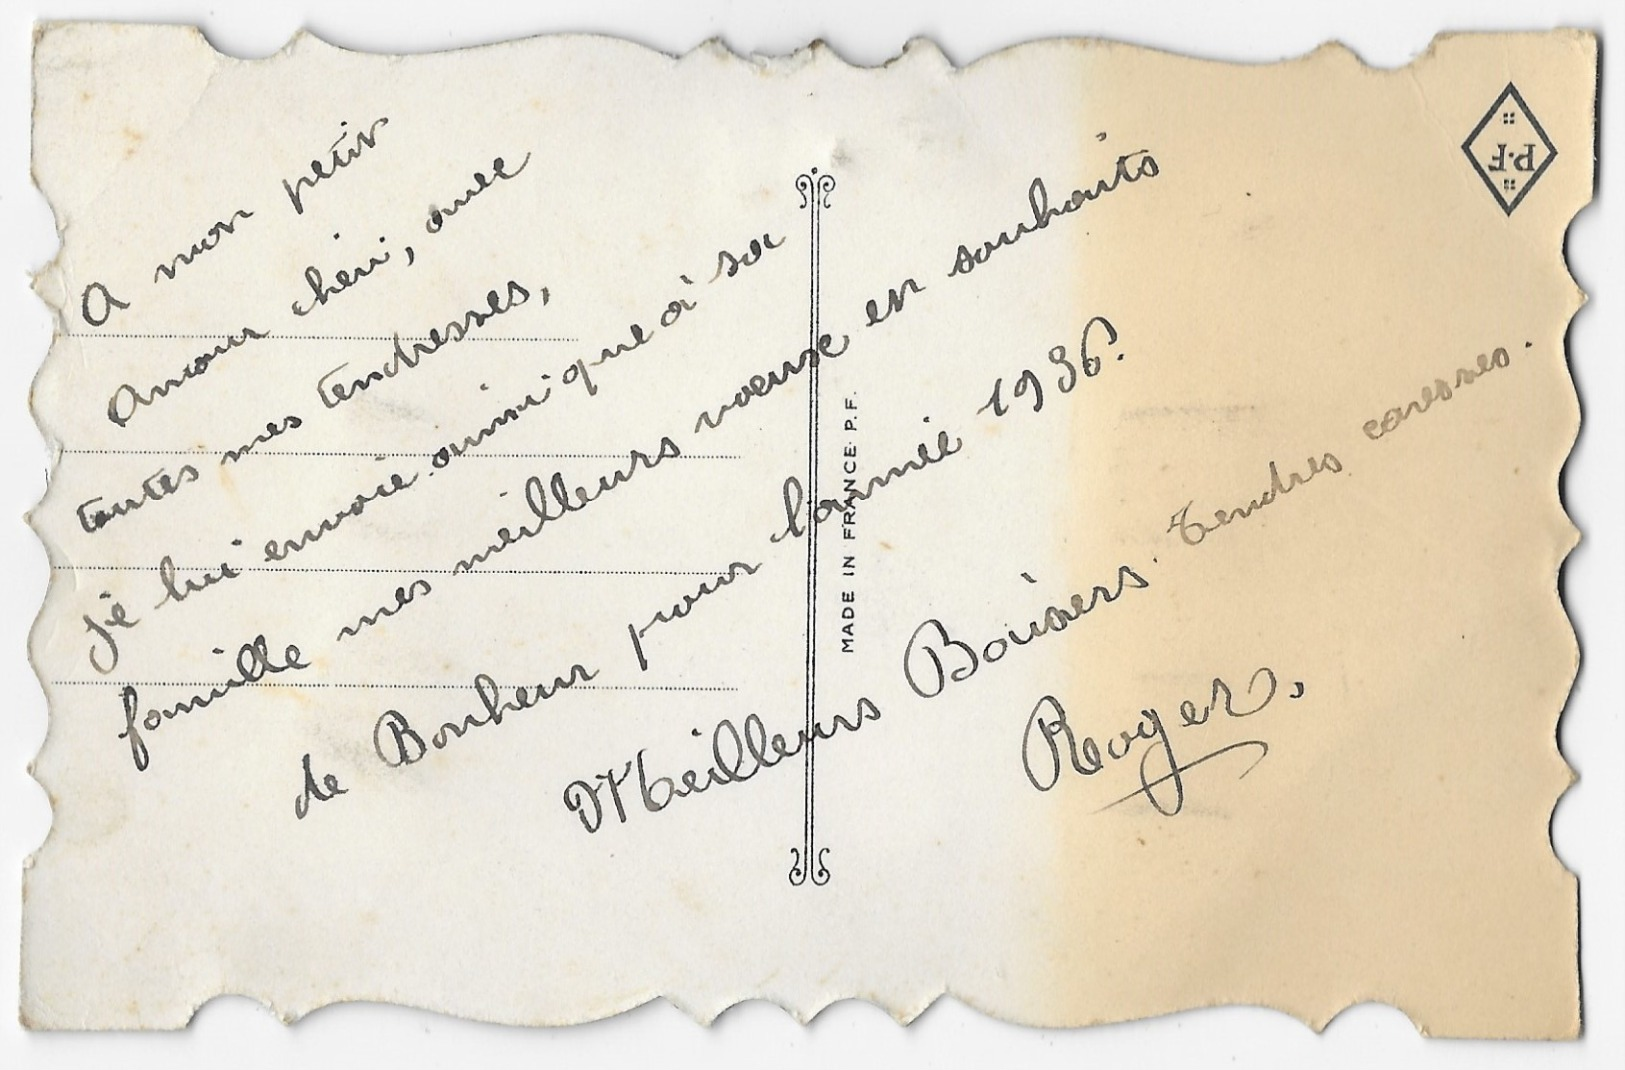 A mon petit
Amour chéri, avec
toutes mes tendresses,
Je lui envoie ainsi que à sa
famille mes meilleurs voeuxe en souhaits
de Bonheur pour l'année 1936.
Meilleurs Baisers. Tendres caresses.
Roger.
MADE IN FRANCE P.F.
P.F